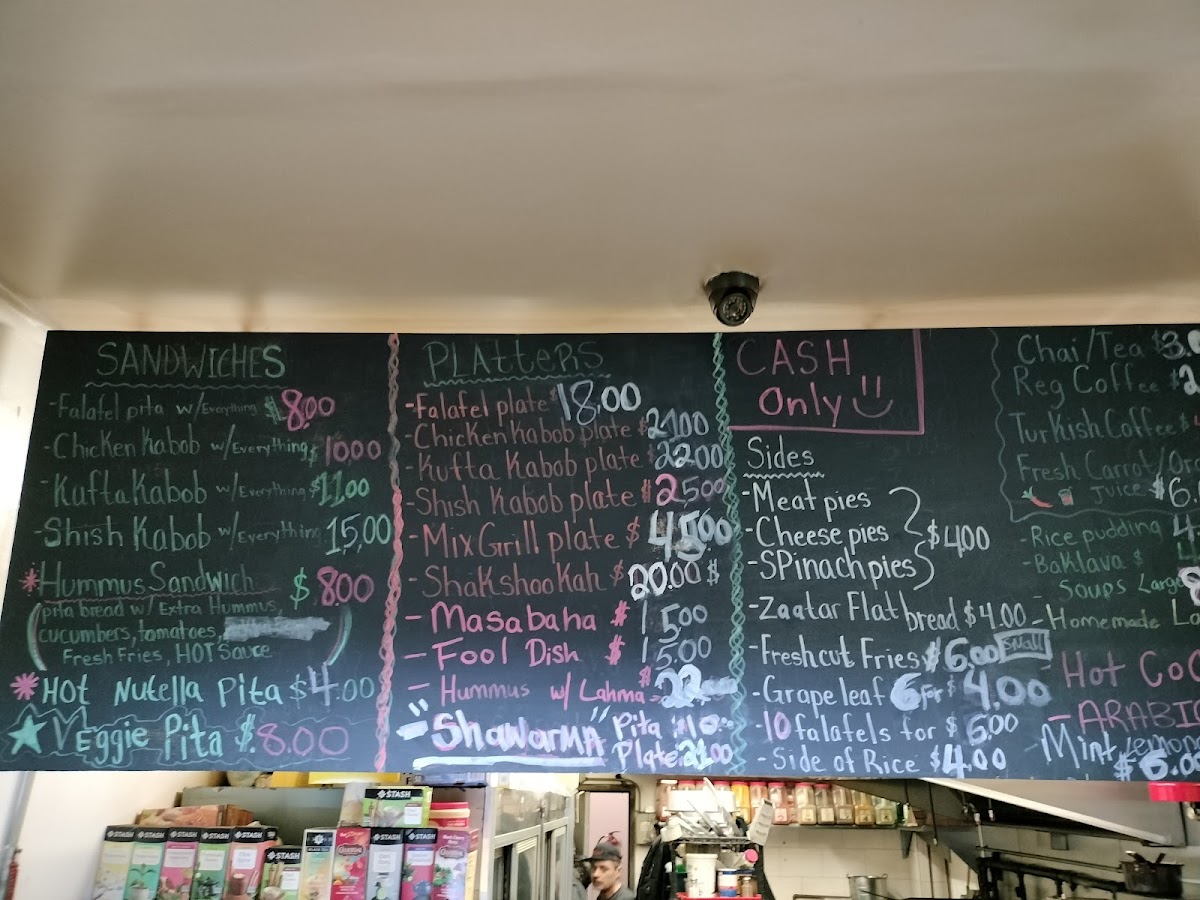 SANDWICHES
-Falafel pita w/Everything $8.00
-Chicken Kabob w/Everything $1000
-Kufta Kabob w/Everything $11.00
-Shish Kabob w/Everything 15,00
*Hummus Sandwich $.800
(pita bread w/ Extra Hummus,
cucumbers, tomatoes,
Fresh Fries, HOT Sauce)
*HOT Nutella Pita $4.00
Veggie Pita $.8.00
PLATTERS
-Falafel plate $18.00
-Chicken Kabob plate $2100
-Kufta Kabob plate $2200
-Shish Kabob plate $2500
-Mix Grill plate $
-ShaKshooKah $20.00 $
-Masabaha $15.00
-Fool Dish $15.00
-Hummus w/ Lahma $22
"ShaWarMA" Pita $10
Plate 21.00
CASH
Only
Sides
-Meat pies
-Cheese pies $400
-SPinach pies
-Zaatar Flat bread $4.00
-Fresh cut Fries $6.00 Small
-Grape leaf 6 for $4.00
-10 falafels for $6.00
-Side of Rice $4.00
Chai/Tea $3.
Reg Coffee $
Turkish Coffee $
Fresh Carrot/Or
Juice $6.
-Rice pudding 4
-Baklava $
Soups Large
-Homemade
Hot Co
-ARABI
-Mint Lemon
$6.0
STASH
STASH
STASH
STASH
STASH
STASH
STASH
STASH
STASH